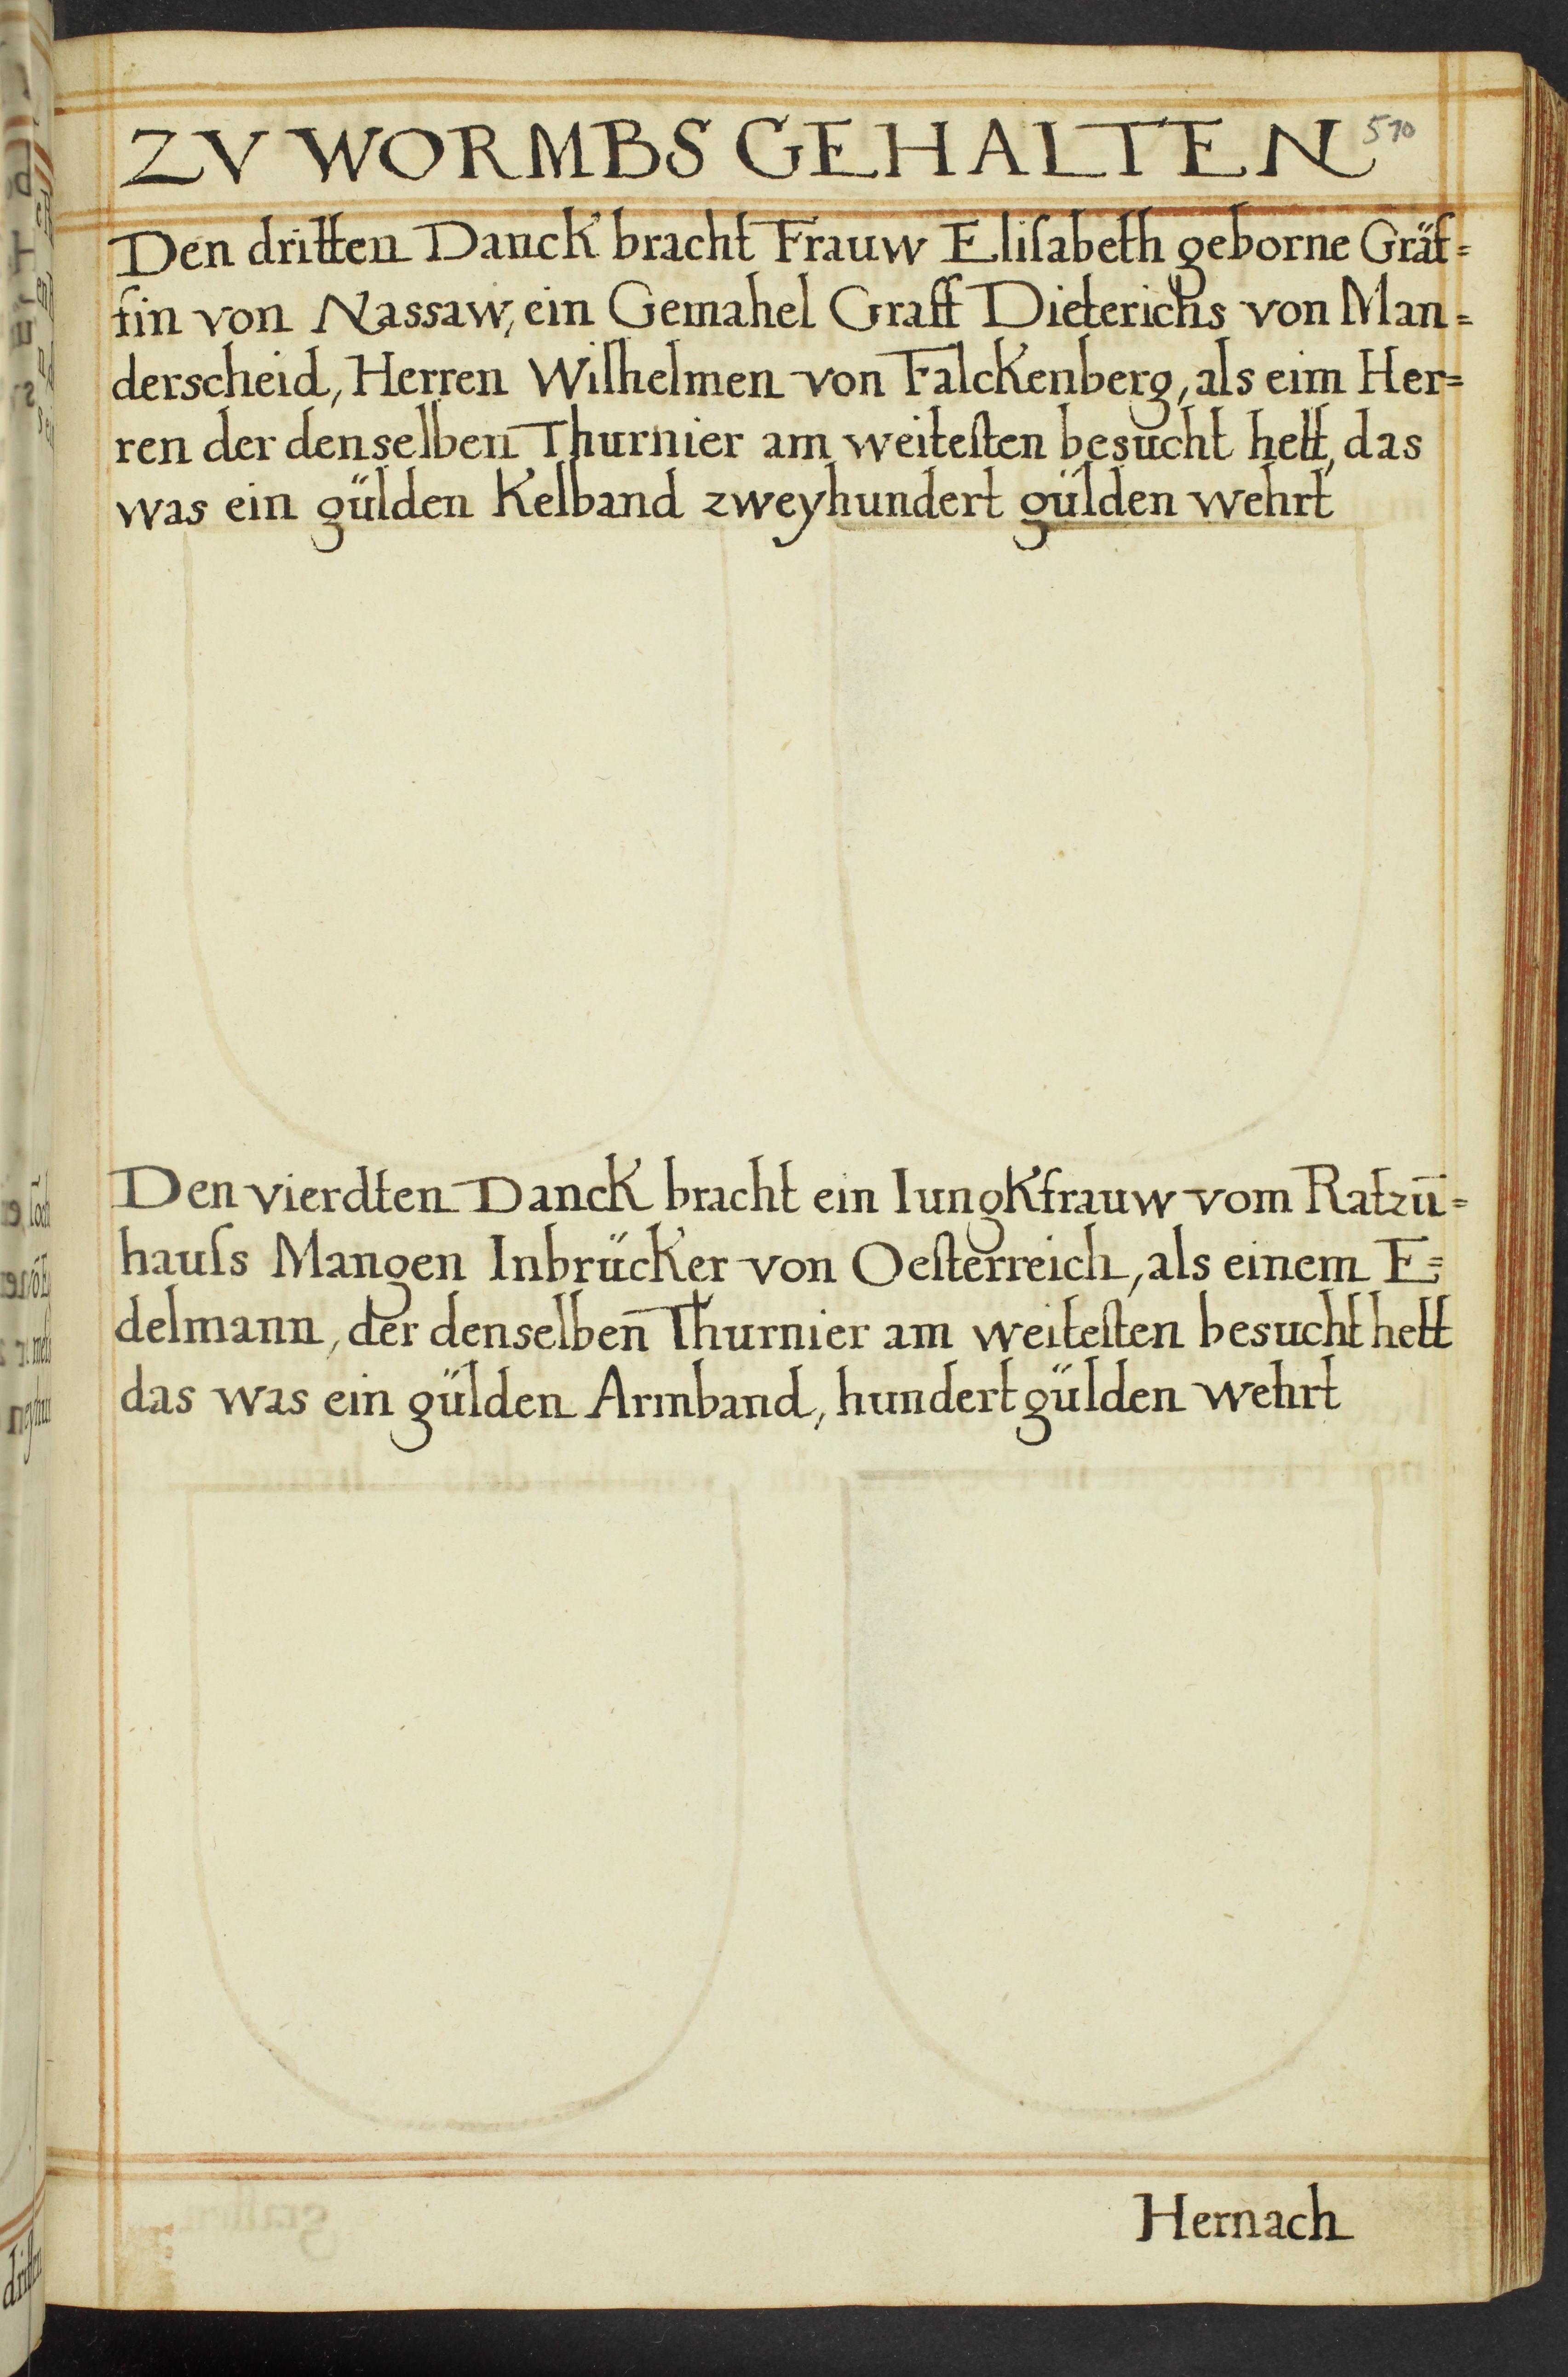 ZV WORMBS GEHALTEN 510
Den dritten Danck bracht Frauw Eliſabeth geborne Gräf=
fin von Nassaw, ein Gemahel Graff Dieterichs von Man=
derscheid, Herren Wilhelmen von Falckenberg, als eim Her=
ren der denselben Thurnier am weiteſten besucht hett, das
was ein gülden Kelband zweyhundert gülden wehrt
Den vierdten Danck bracht ein Iungkfrauw vom Ratzū=
hauſs Mangen Inbrücker von Oeſterreich, als einem E=
delmann, der denselben Thurnier am weiteſten besucht hett
das was ein gülden Armband, hundert gülden wehrt
Hernach